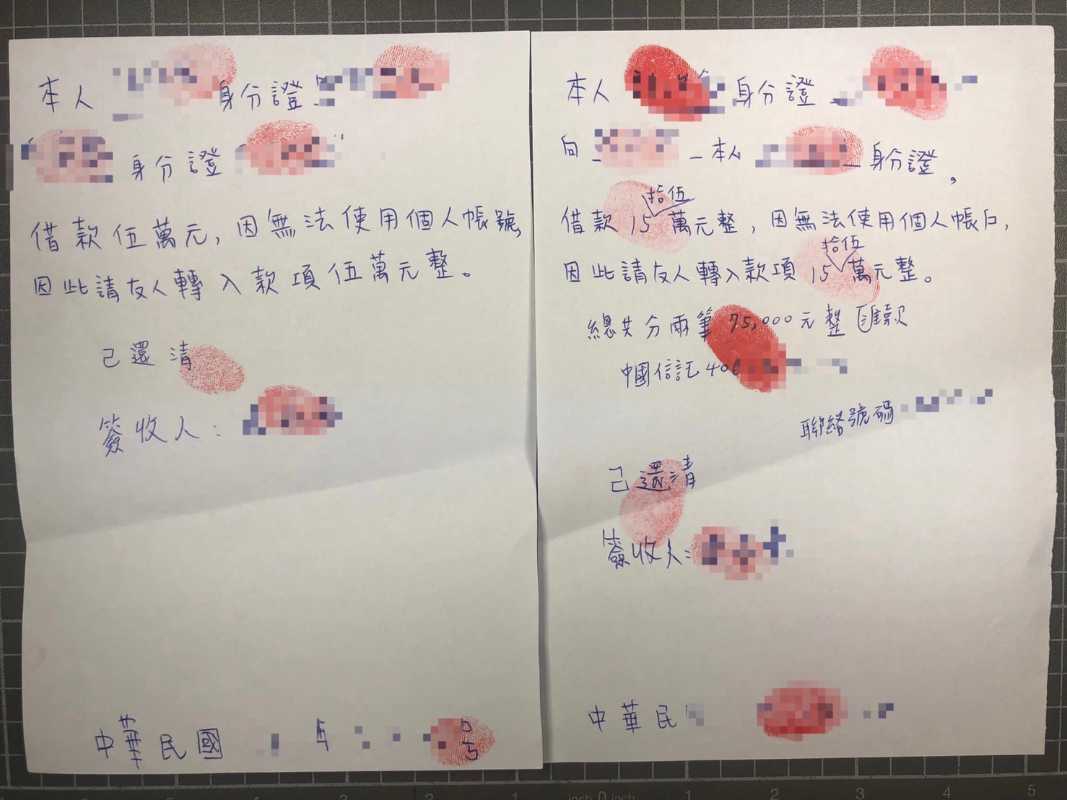 本人 身分證
身分證
借款伍萬元,因無法使用個人帳號,
因此請友人轉入款項伍萬元整。
己還清
簽收人:
中華民國 号
本人 身分證
向 本人 身分證,
拾伍
借款15萬元整,因無法使用個人帳戶,
拾伍
因此請友人轉入款項15萬元整。
總共分兩筆75,000元整匯款
中國信託
聯絡號碼
己還清
簽收人:
中華民
inch 0 inch 1 2 3 4 5